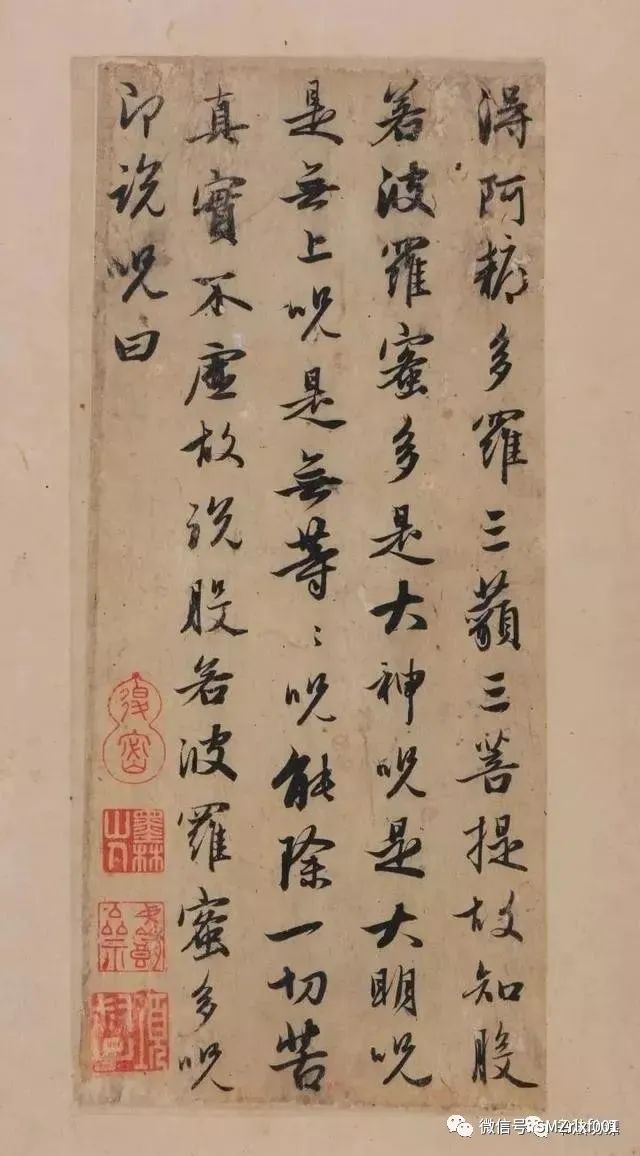 得阿耨多羅三藐三菩提故知般
若波羅蜜多是大神呪是大明呪
是無上呪是無等〻呪能除一切苦
真實不虛故說般若波羅蜜多呪
即說呪曰
退密
墨林山人
微信号